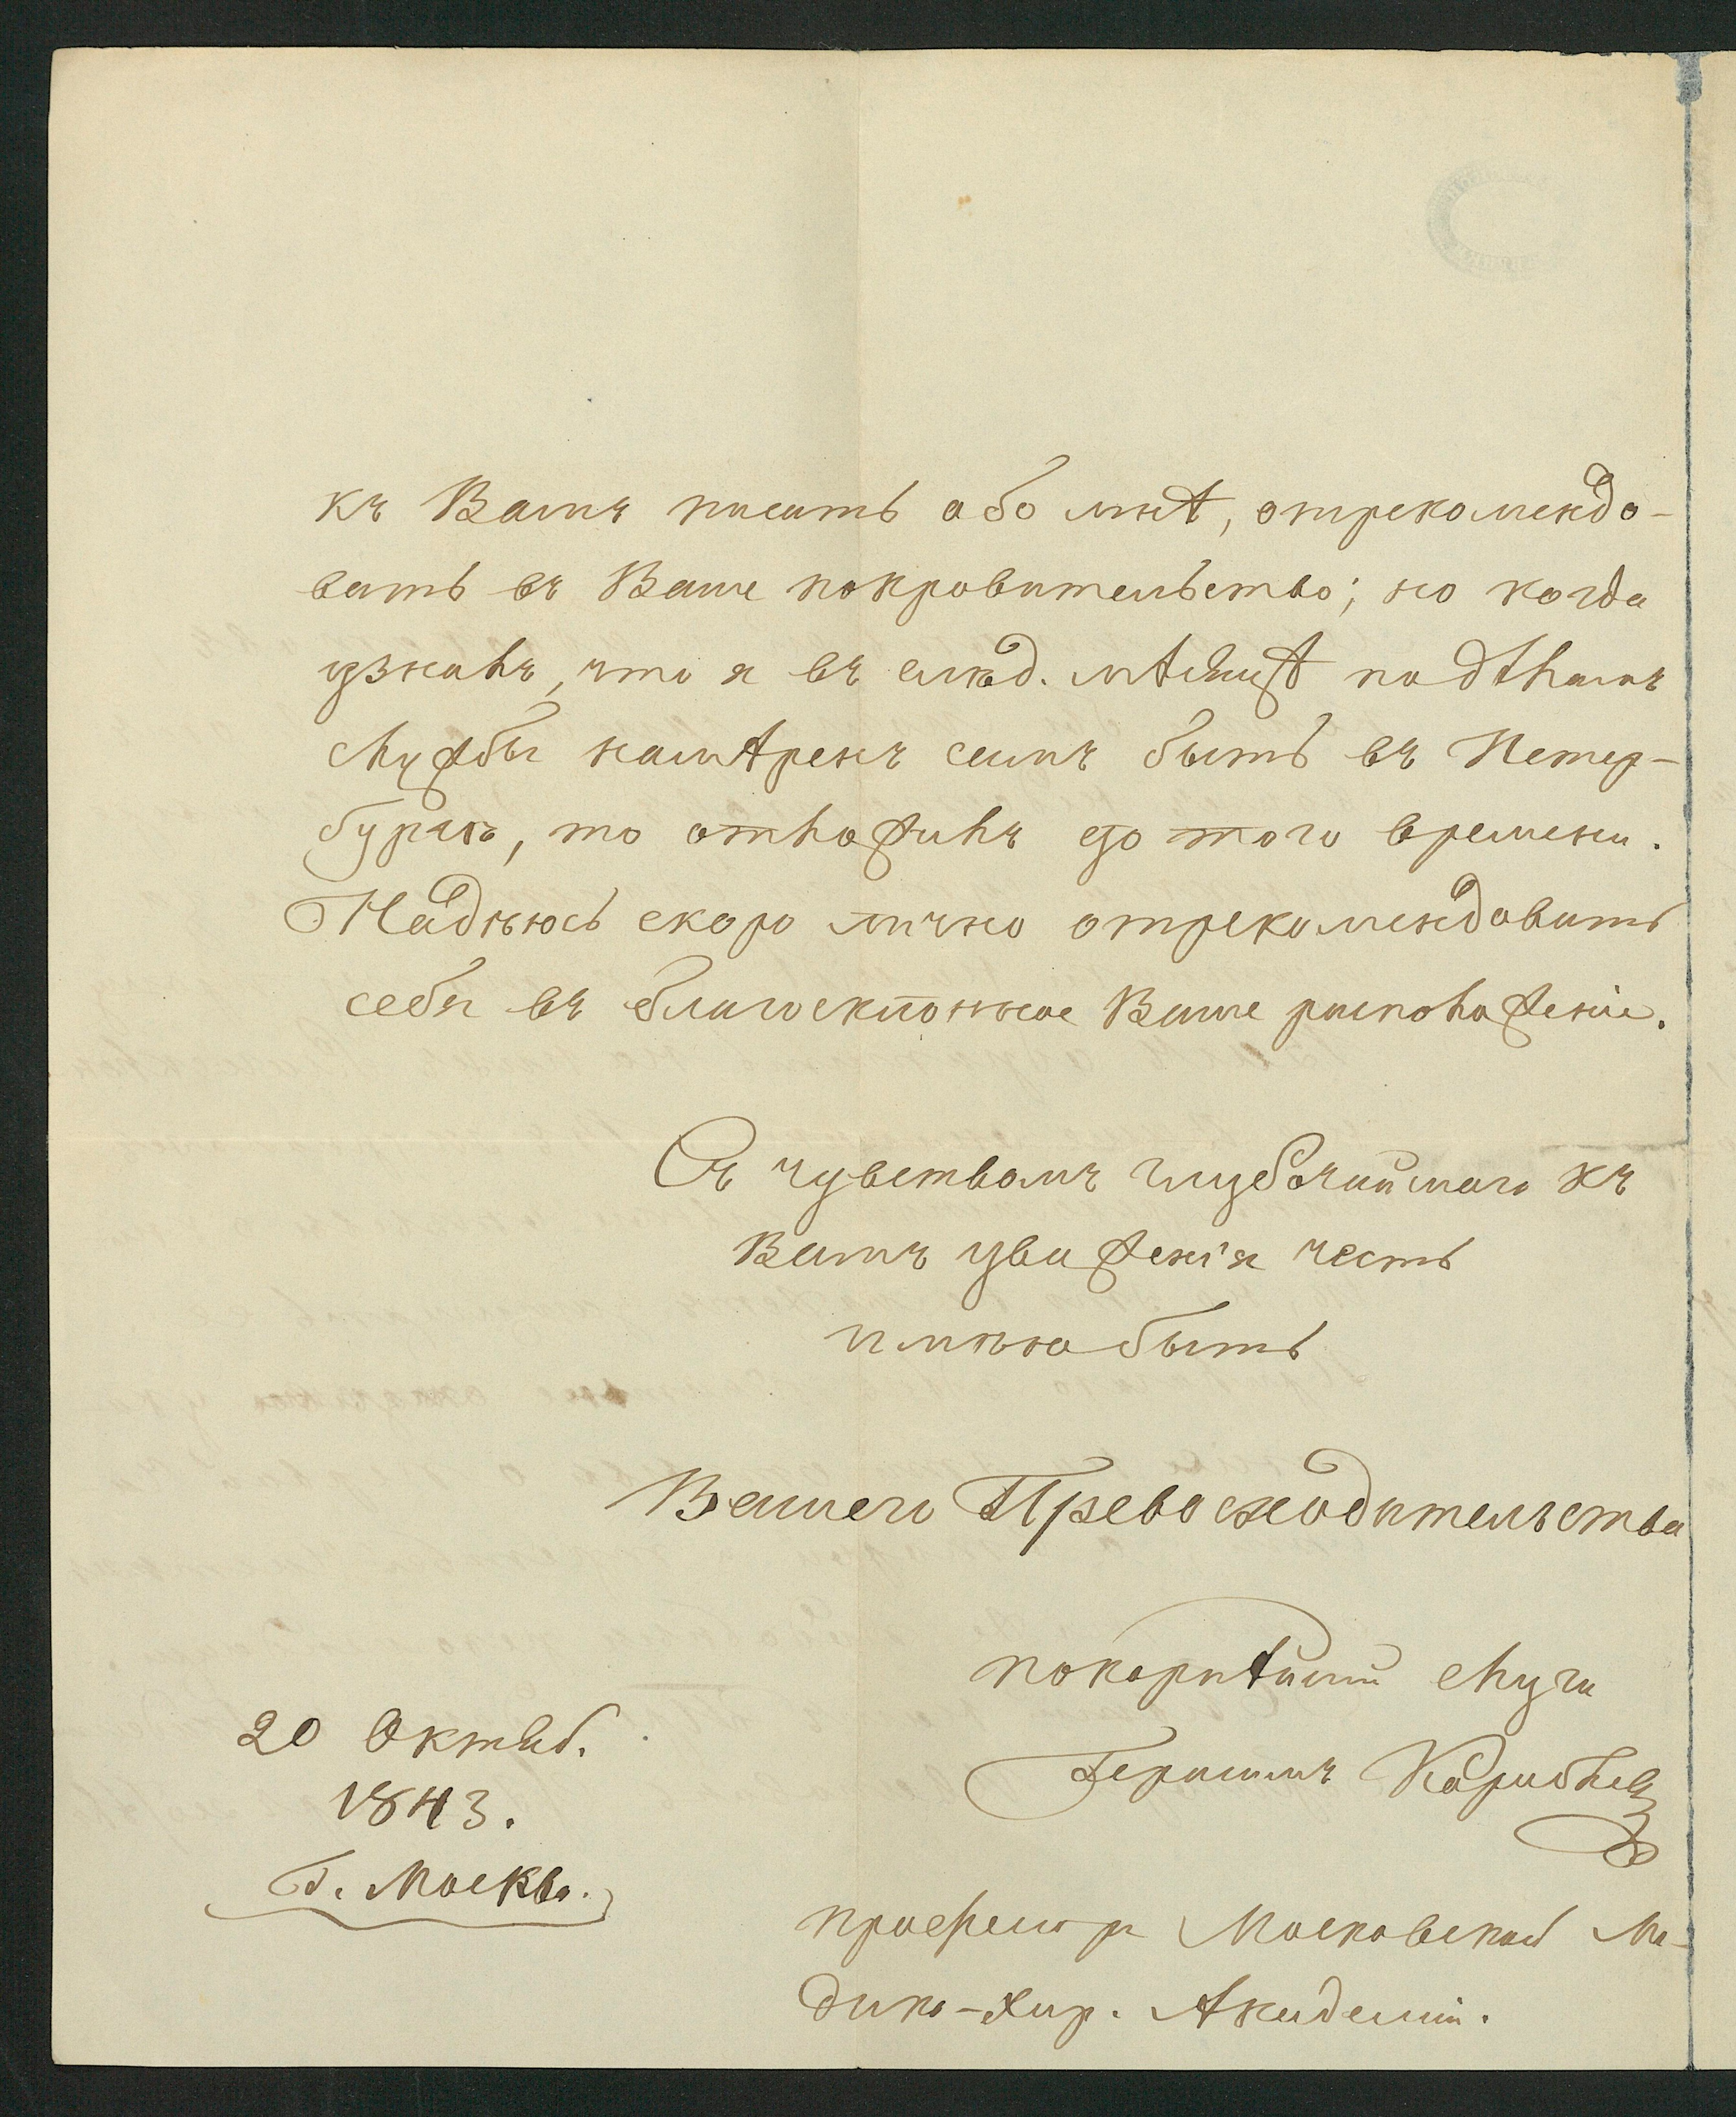 къ Вамъ писать обо мнѣ, отрекомендо-
вать въ Ваше покровительство; но когда
узналъ, что я въ слѣд. мѣсяцѣ по дѣламъ
службы намѣренъ самъ быть въ Петер-
бургѣ, то отложилъ до того времени.
Надѣюсь скоро лично отрекомендовать
себя въ благосклонное Ваше расположеніе.
Съ чувствомъ глубочайшаго къ
Вамъ уваженія честь
имѣю быть
Вашего Превосходительства
покорнѣйшій слуга
Герасимъ Кораблевъ
професоръ Московской Ме-
дико-Хир. Академіи.
20 Октяб.
1843.
Г. Москва.